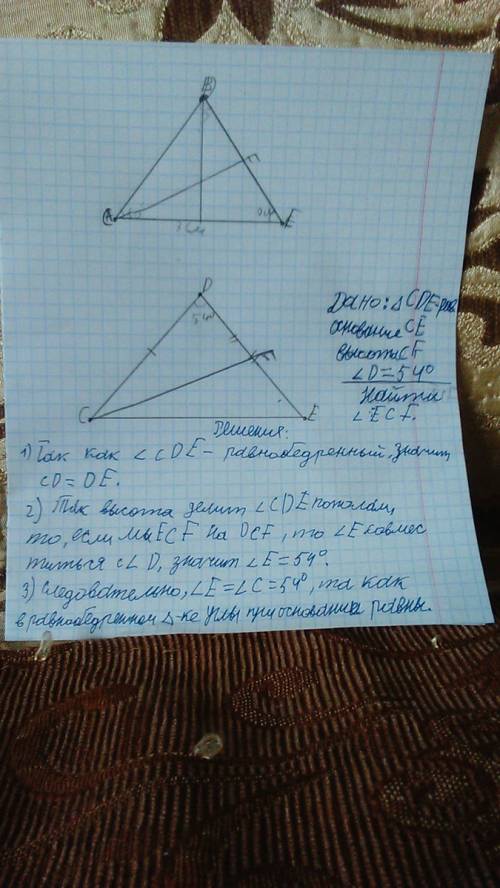 D
F
E
D
54°
F
C
E
Дано: △CDE-рав.
основание CE
высота CF
∠D=54°
Найти
∠ECF.
Решения:
1) Так как ∠CDE - равнобедренный, значит
CD = DE.
2) Так высота делит ∠CDE пополам,
то, если мы ECF на DCF, то ∠E совмес
титься с ∠D, значит ∠E=54°.
3) Следовательно, ∠E=∠C=54°, та как
в равнобедренном △-ке углы при основание равны.